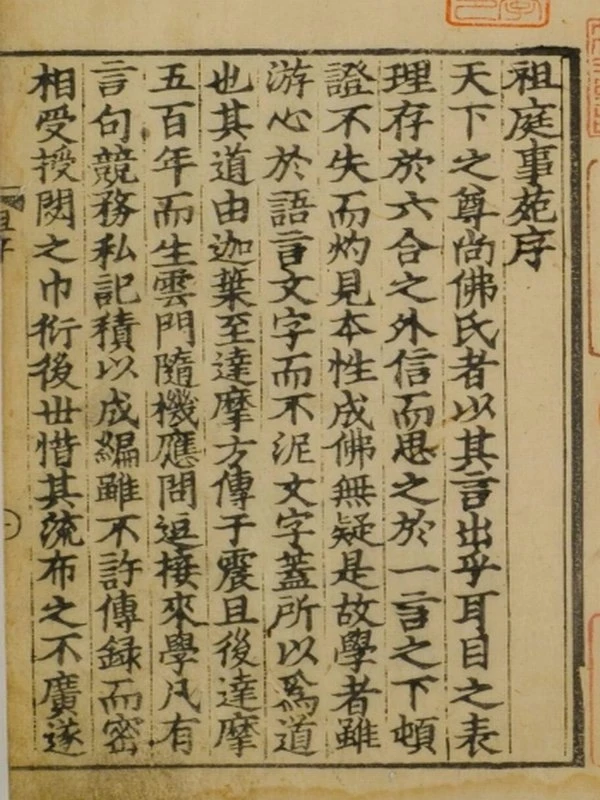 祖庭事苑序
天下之尊尚佛氏者以其言出乎耳目之表
理存於六合之外信而思之於一言之下頓
證不失而灼見本性成佛無疑是故學者雖
游心於語言文字而不泥文字蓋所以爲道
也其道由迦葉至達摩方傳于震旦後達摩
五百年而生雲門隨機應問逗接來學凡有
言句競務私記積以成編雖不許傳録而密
相受授閟之巾衍後世惜其流布之不廣遂